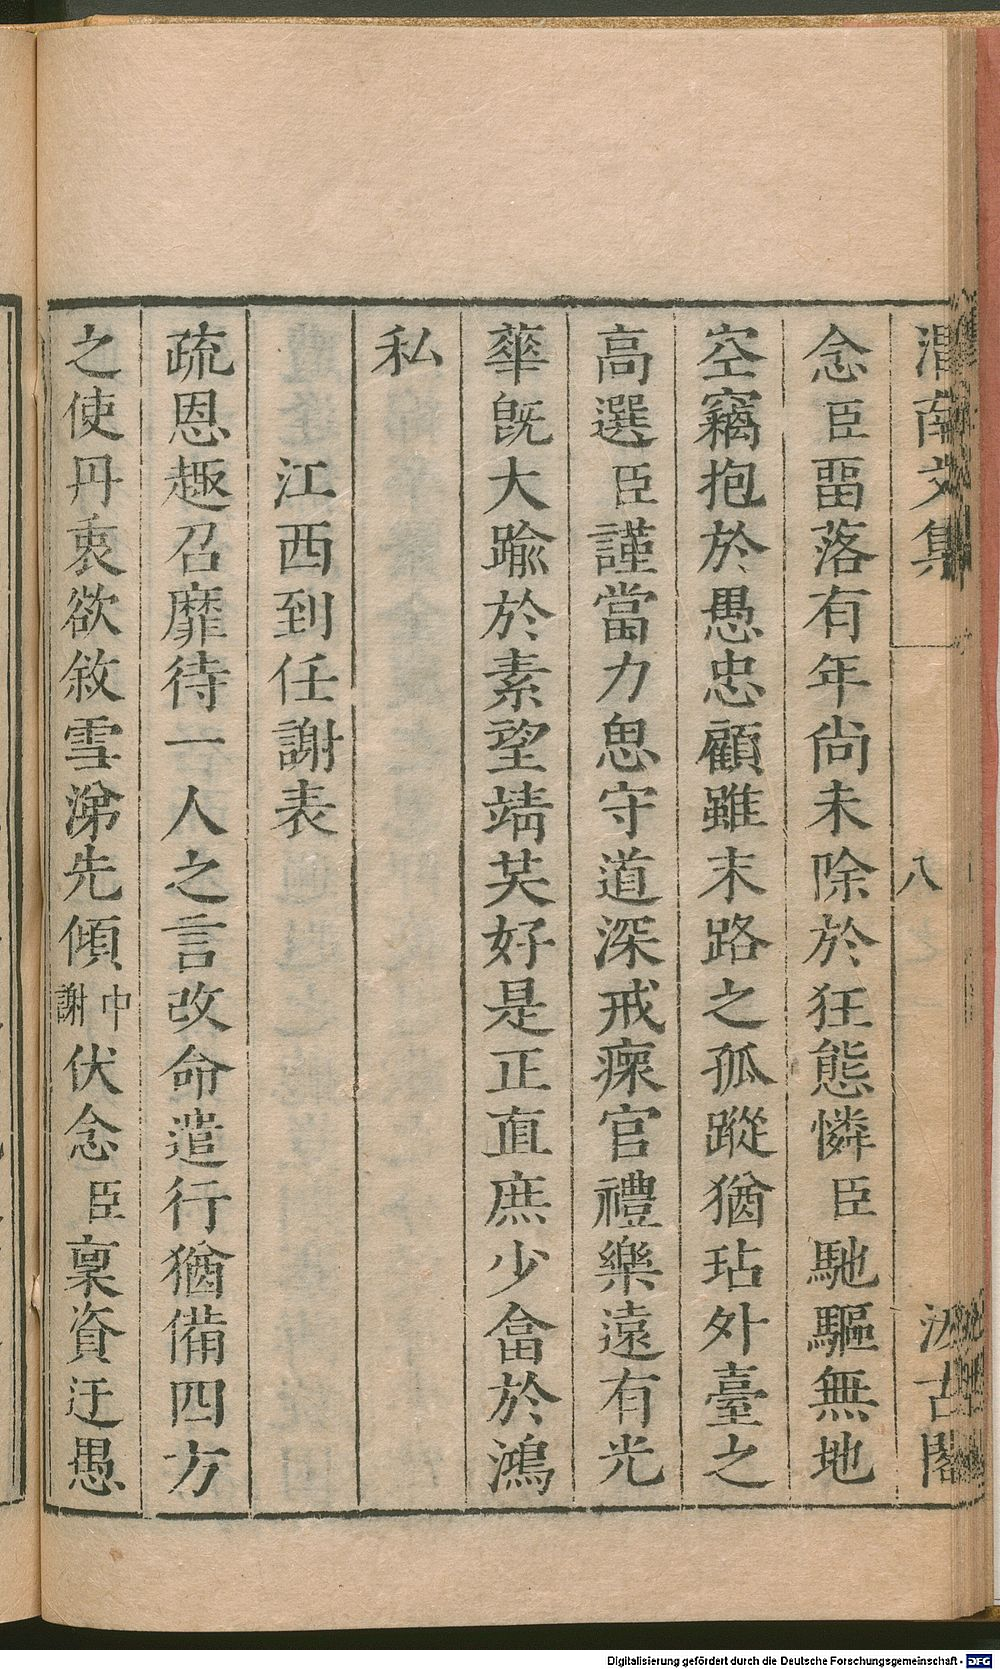 渭南文集
八
汲古閣
念臣畱落有年尚未除於狂態憐臣馳驅無地
空竊抱於愚忠顧雖末路之孤蹤猶玷外臺之
高選臣謹當力思守道深戒瘝官禮樂遠有光
華旣大踰於素望靖共好是正直庶少畣於鴻
私
江西到任謝表
疏恩趣召靡待一人之言改命遣行猶備四方
之使丹衷欲敘雪涕先傾中謝伏念臣稟資迂愚
Digitalisierung gefördert durch die Deutsche Forschungsgemeinschaft - DFG